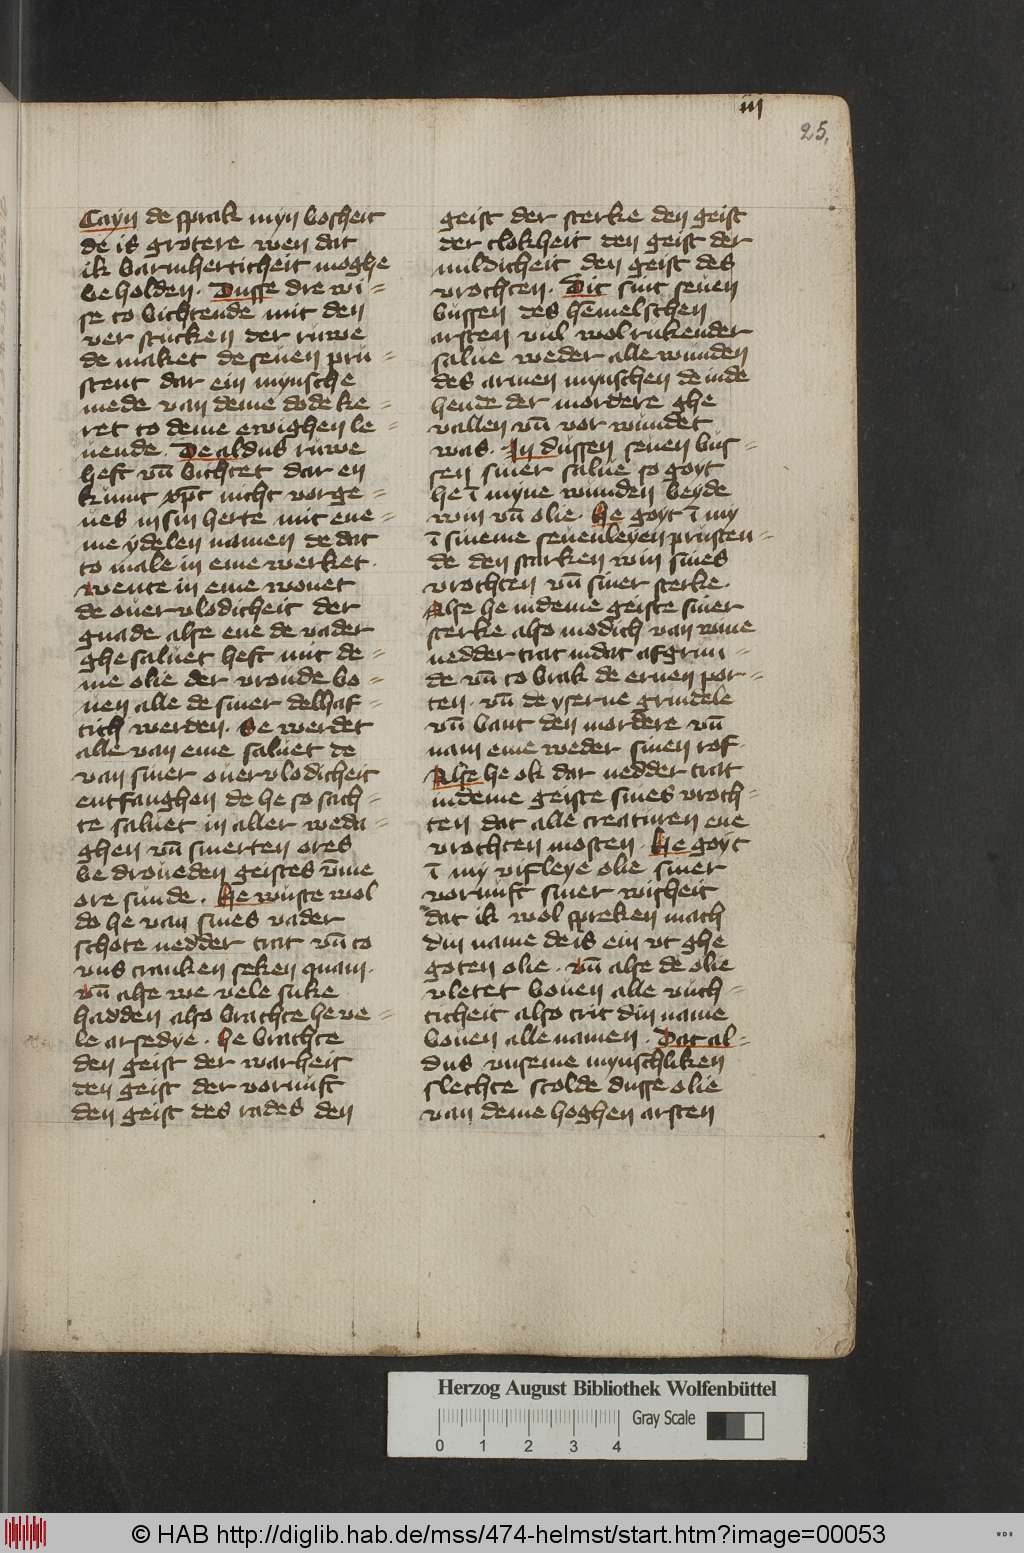 iij
25.
Cayn de sprak myn bosheit
de is grotere wen dat
ik barmherticheit moghe
beholden. Dusse dre wi=
se to bichtende mit den
ver stucken der ruwe
de maket de seuen pru=
stent dar ein mynsche
mede van deme dode ke=
ret to deme ewighen le=
uende. De aldus ruwe
heft vn̄ bichtet dar en
kumt xp̄c nicht vorge=
ues in sin herte mit ene=
me ydelen namen de dat
to male in eme werket.
wente in eme wonet
de ouervlodicheit der
gnade alse ene de vader
ghesaluet heft mit de=
me olie der vroude bo=
uen alle de siner delhaf=
tich werden. Se werdet
alle van eme saluet de
van siner ouervlodicheit
entfanghen de he so sach=
te saluet in aller weda=
ghen vn̄ smerten ores
bedroueden geistes v̄me
ore sunde. He wuste wol
do he van sines vader
schote nedder trat vn̄ to
vns cranken seken quam.
vn̄ alse we vele suke
hadden also brachte he ve=
le arsedye. he brachte
den geist der warheit
den geist der vornuft
den geist des rades den
geist der sterke den geist
der clokheit den geist der
mildicheit den geist des
vrochten. Dit sint seuen
bussen des hemelschen
arsten vul wolrukender
salue weder alle wunden
des armen mynschen de in de
hende der mordere ghe
vallen vn̄ vorwundet
was. In dussen seuen bus=
sen siner salue so goyt
he ī myne wunden beyde
win vn̄ olie. He goyt ī my
ī sineme seuenleyen prusten=
de den starken win sines
vrochten vn̄ siner sterke.
Alse he in deme geiste siner
sterke also modich van wine
nedder trat in dat afgrun=
de vn̄ to brak de eruen por=
ten. vn̄ de yserne grindele
vn̄ bant den mordere vn̄
nam eme weder sinen rof.
Alse he ok dar nedder trat
in deme geiste sines vroch=
ten dat alle creaturen ene
vrochten mosten. He goyt
ī my vifleye olie siner
vornuft siner wisheit
dat ik wol spreken mach
din name de is ein vt ghe
goten olie. vn̄ alse de olie
vletet bouen alle vuch=
ticheit also trit din name
bouen alle namen. Dat al=
dus vnseme mynschliken
slechte scolde dusse olie
van deme hoghen arsten
Herzog August Bibliothek Wolfenbüttel
Gray Scale
0 1 2 3 4
© HAB http://diglib.hab.de/mss/474-helmst/start.htm?image=00053